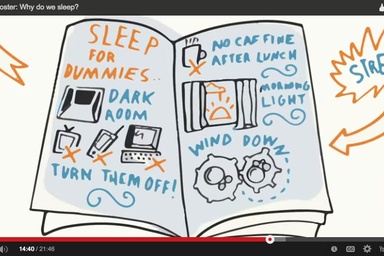 oster: Why do we sleep?
SLEEP
FOR
DUMMIES..
DARK
ROOM
TURN THEM OFF!
NO CAFFINE
AFTER LUNCH
MORNING
LIGHT
WIND DOWN
STRE
14:40 / 21:46